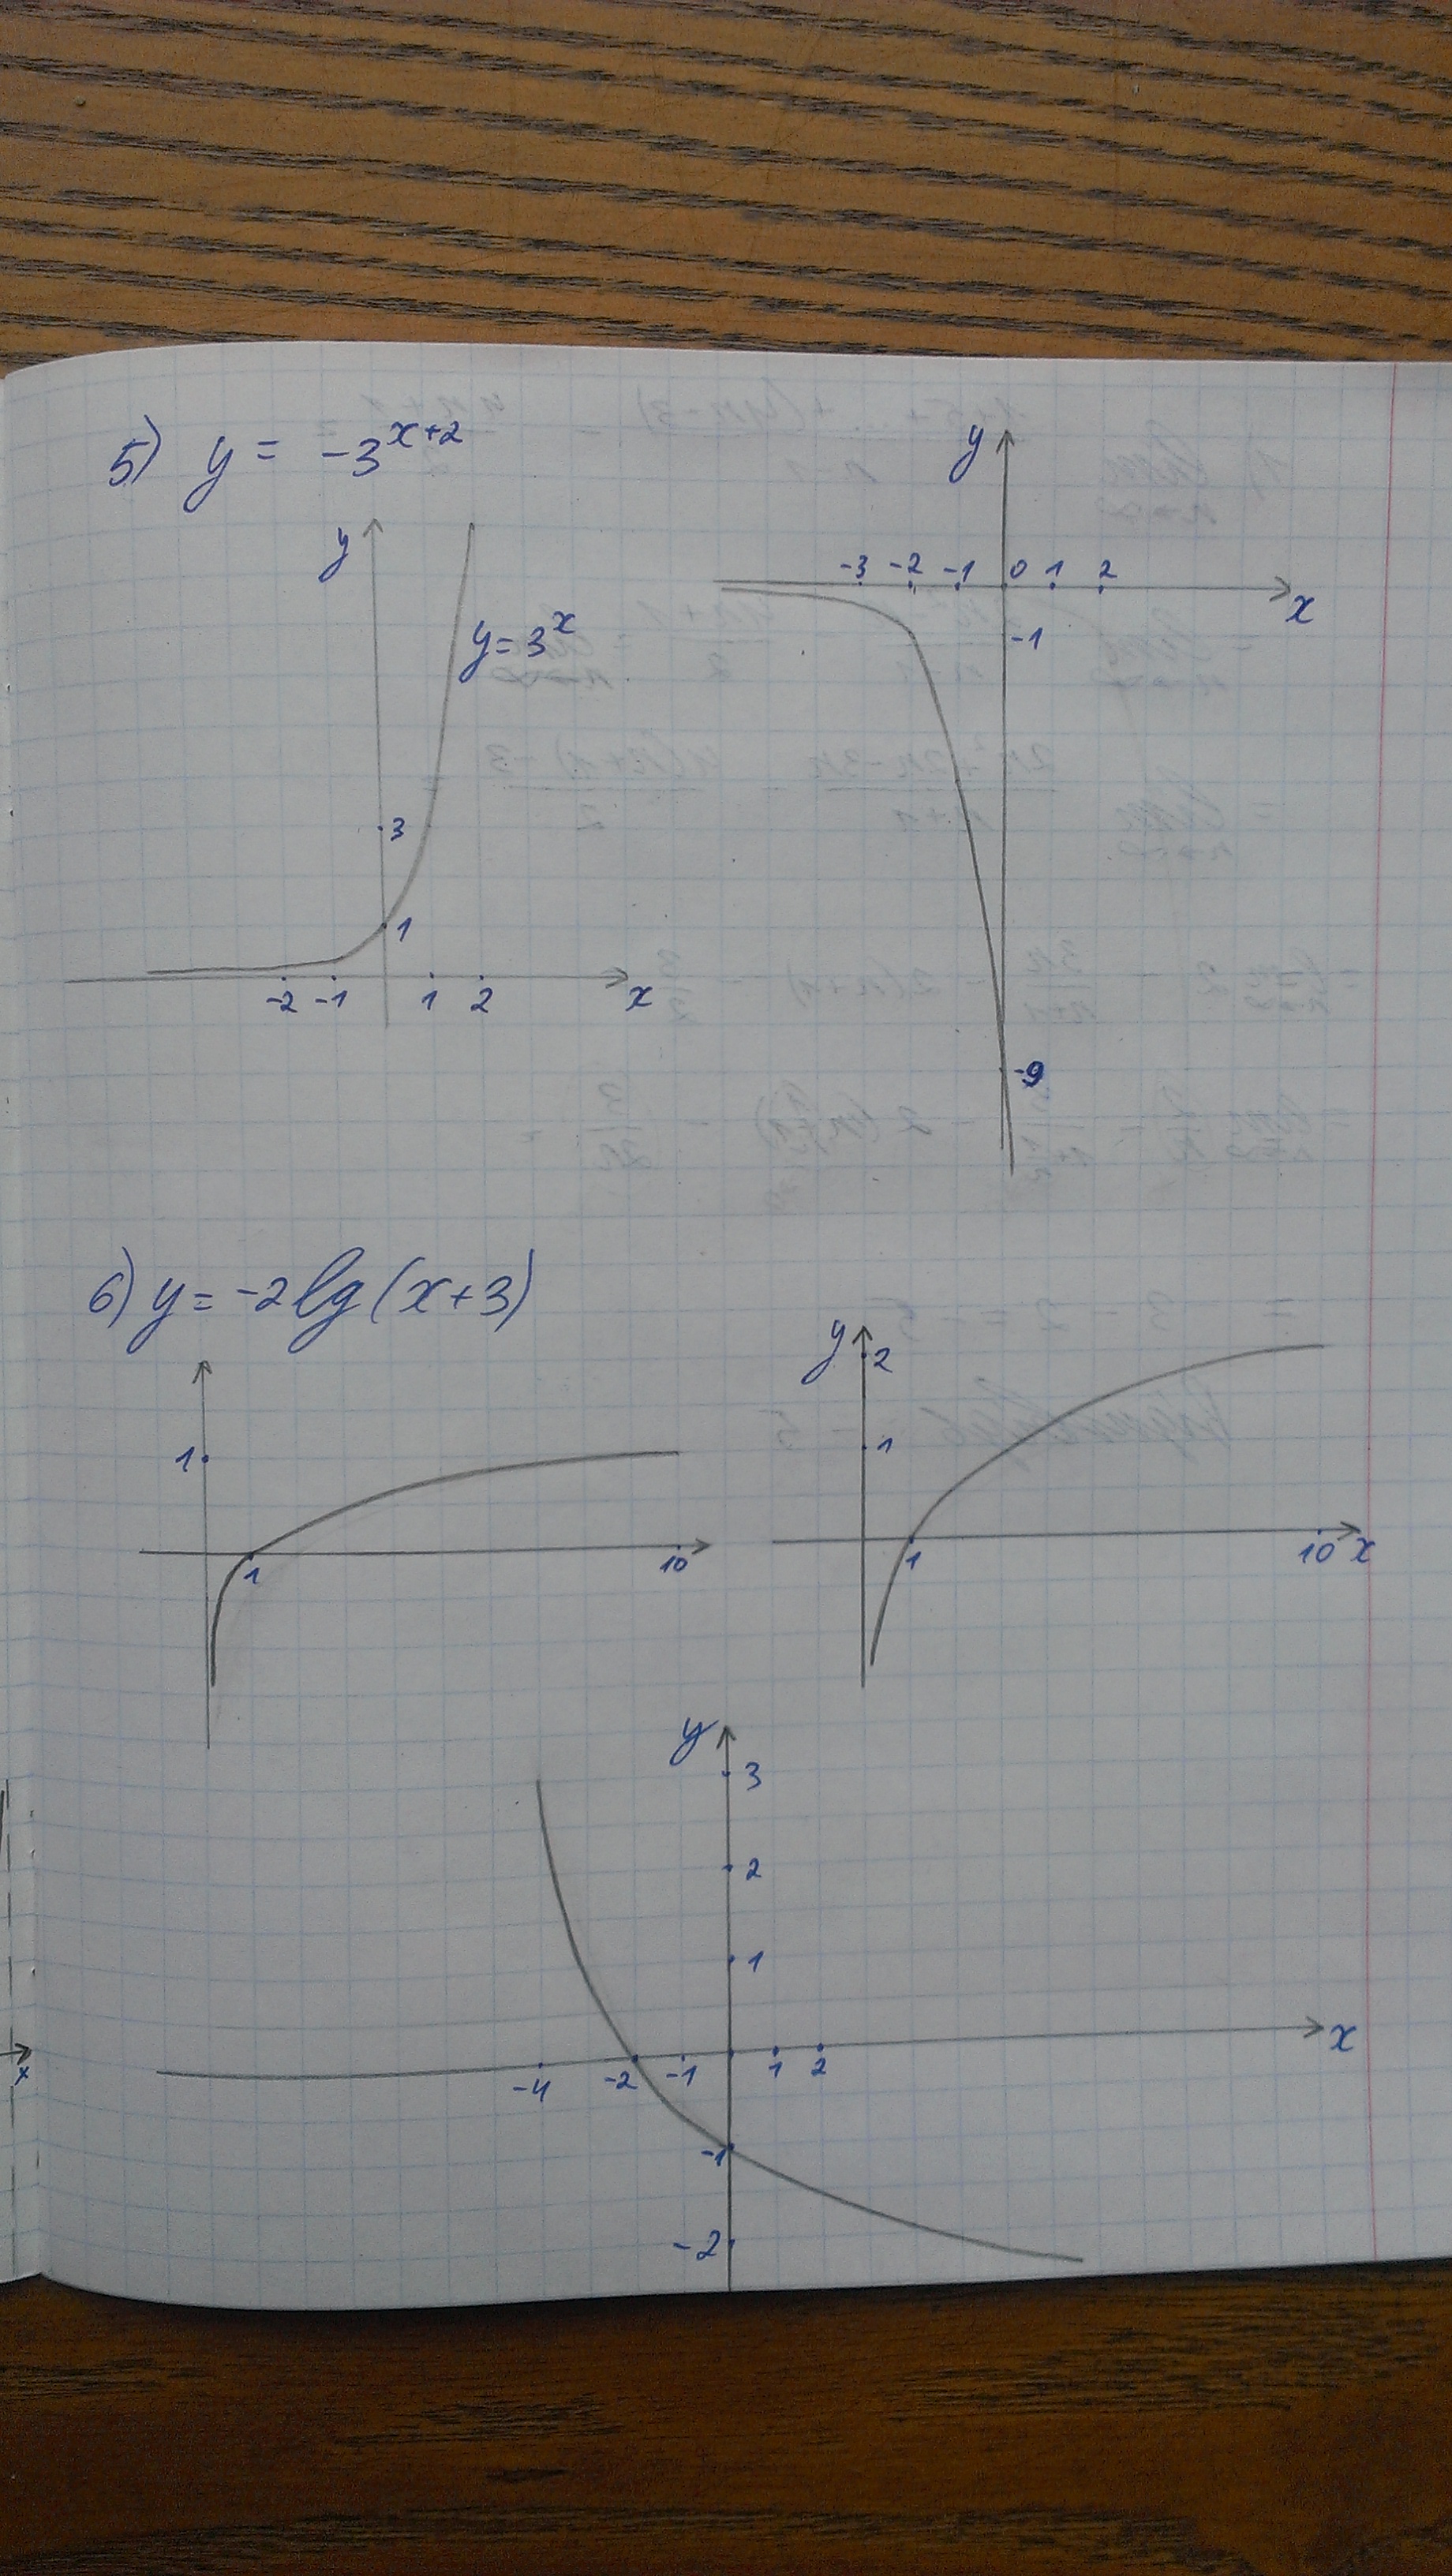 5) y = -3^{x+2}
y
y = 3^x
3
1
-2 -1 1 2 x
y
-3 -2 -1 0 1 2
x
-1
-9
6) y = -2 lg (x+3)
1
1 10
y
2
1
1 10 x
y
3
2
1
x
-4 -2 -1 1 2
-1
-2
x